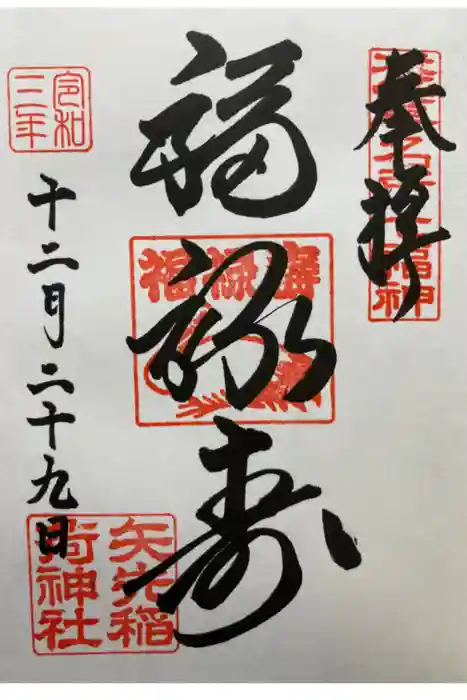 奉拝
福禄寿
福禄寿
令和三年
十二月二十九日
矢先稲荷神社